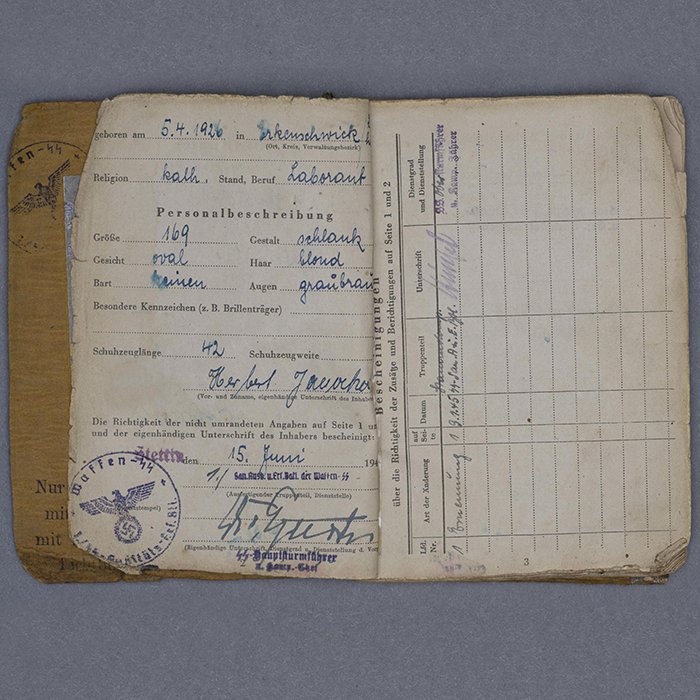 Waffen-SS
Nur
mi
mit
geboren am 5.4.1926 in Erkenschwick
(Ort, Kreis, Verwaltungsbezirk)
Religion kath. Stand, Beruf Laborant
Personalbeschreibung
Größe 169 Gestalt schlank
Gesicht oval Haar blond
Bart keinen Augen graubrau
Besondere Kennzeichen (z. B. Brillenträger)
Schuhzeuglänge 42 Schuhzeugweite
Herbert
(Vor- und Zuname, eigenhändige Unterschrift des Inhabe
Die Richtigkeit der nicht umrandeten Angaben auf Seite 1 u
und der eigenhändigen Unterschrift des Inhabers bescheinigt:
Stettin den 15. Juni 194
1./ San. Ausb. u. Ers. Batl. der Waffen-SS
(Ausfertigender Truppenteil, Dienststelle)
stempel)
(Eigenhändige Unterschrift, Dienstgrad u. Dienststellung d. Vor
SS-Hauptsturmführer
u. Komp.-Chef
Waffen-SS
Bescheinigungen
über die Richtigkeit der Zusätze und Berichtigungen auf Seite 1 und 2
Lfd. Nr.
Art der Änderung
auf Seite
Datum
Truppenteil
Unterschrift
Dienstgrad und Dienststellung
1 Ernennung 1 9.1.45
u. Komp. Führer
3